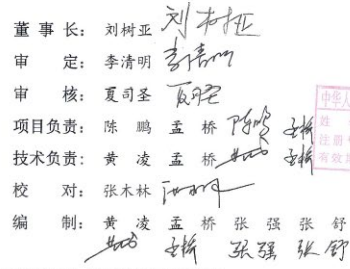 董 事 长：刘树亚 刘树亚
审 定：李清明 李清明
审 核：夏司圣 夏司圣
项目负责：陈 鹏 孟 桥 陈鹏 孟桥
技术负责：黄 凌 孟 桥 黄凌 孟桥
校 对：张木林 张木林
编 制：黄 凌 孟 桥 张 强 张 舒
黄凌 孟桥 张强 张舒
中华人
姓
注册
有效